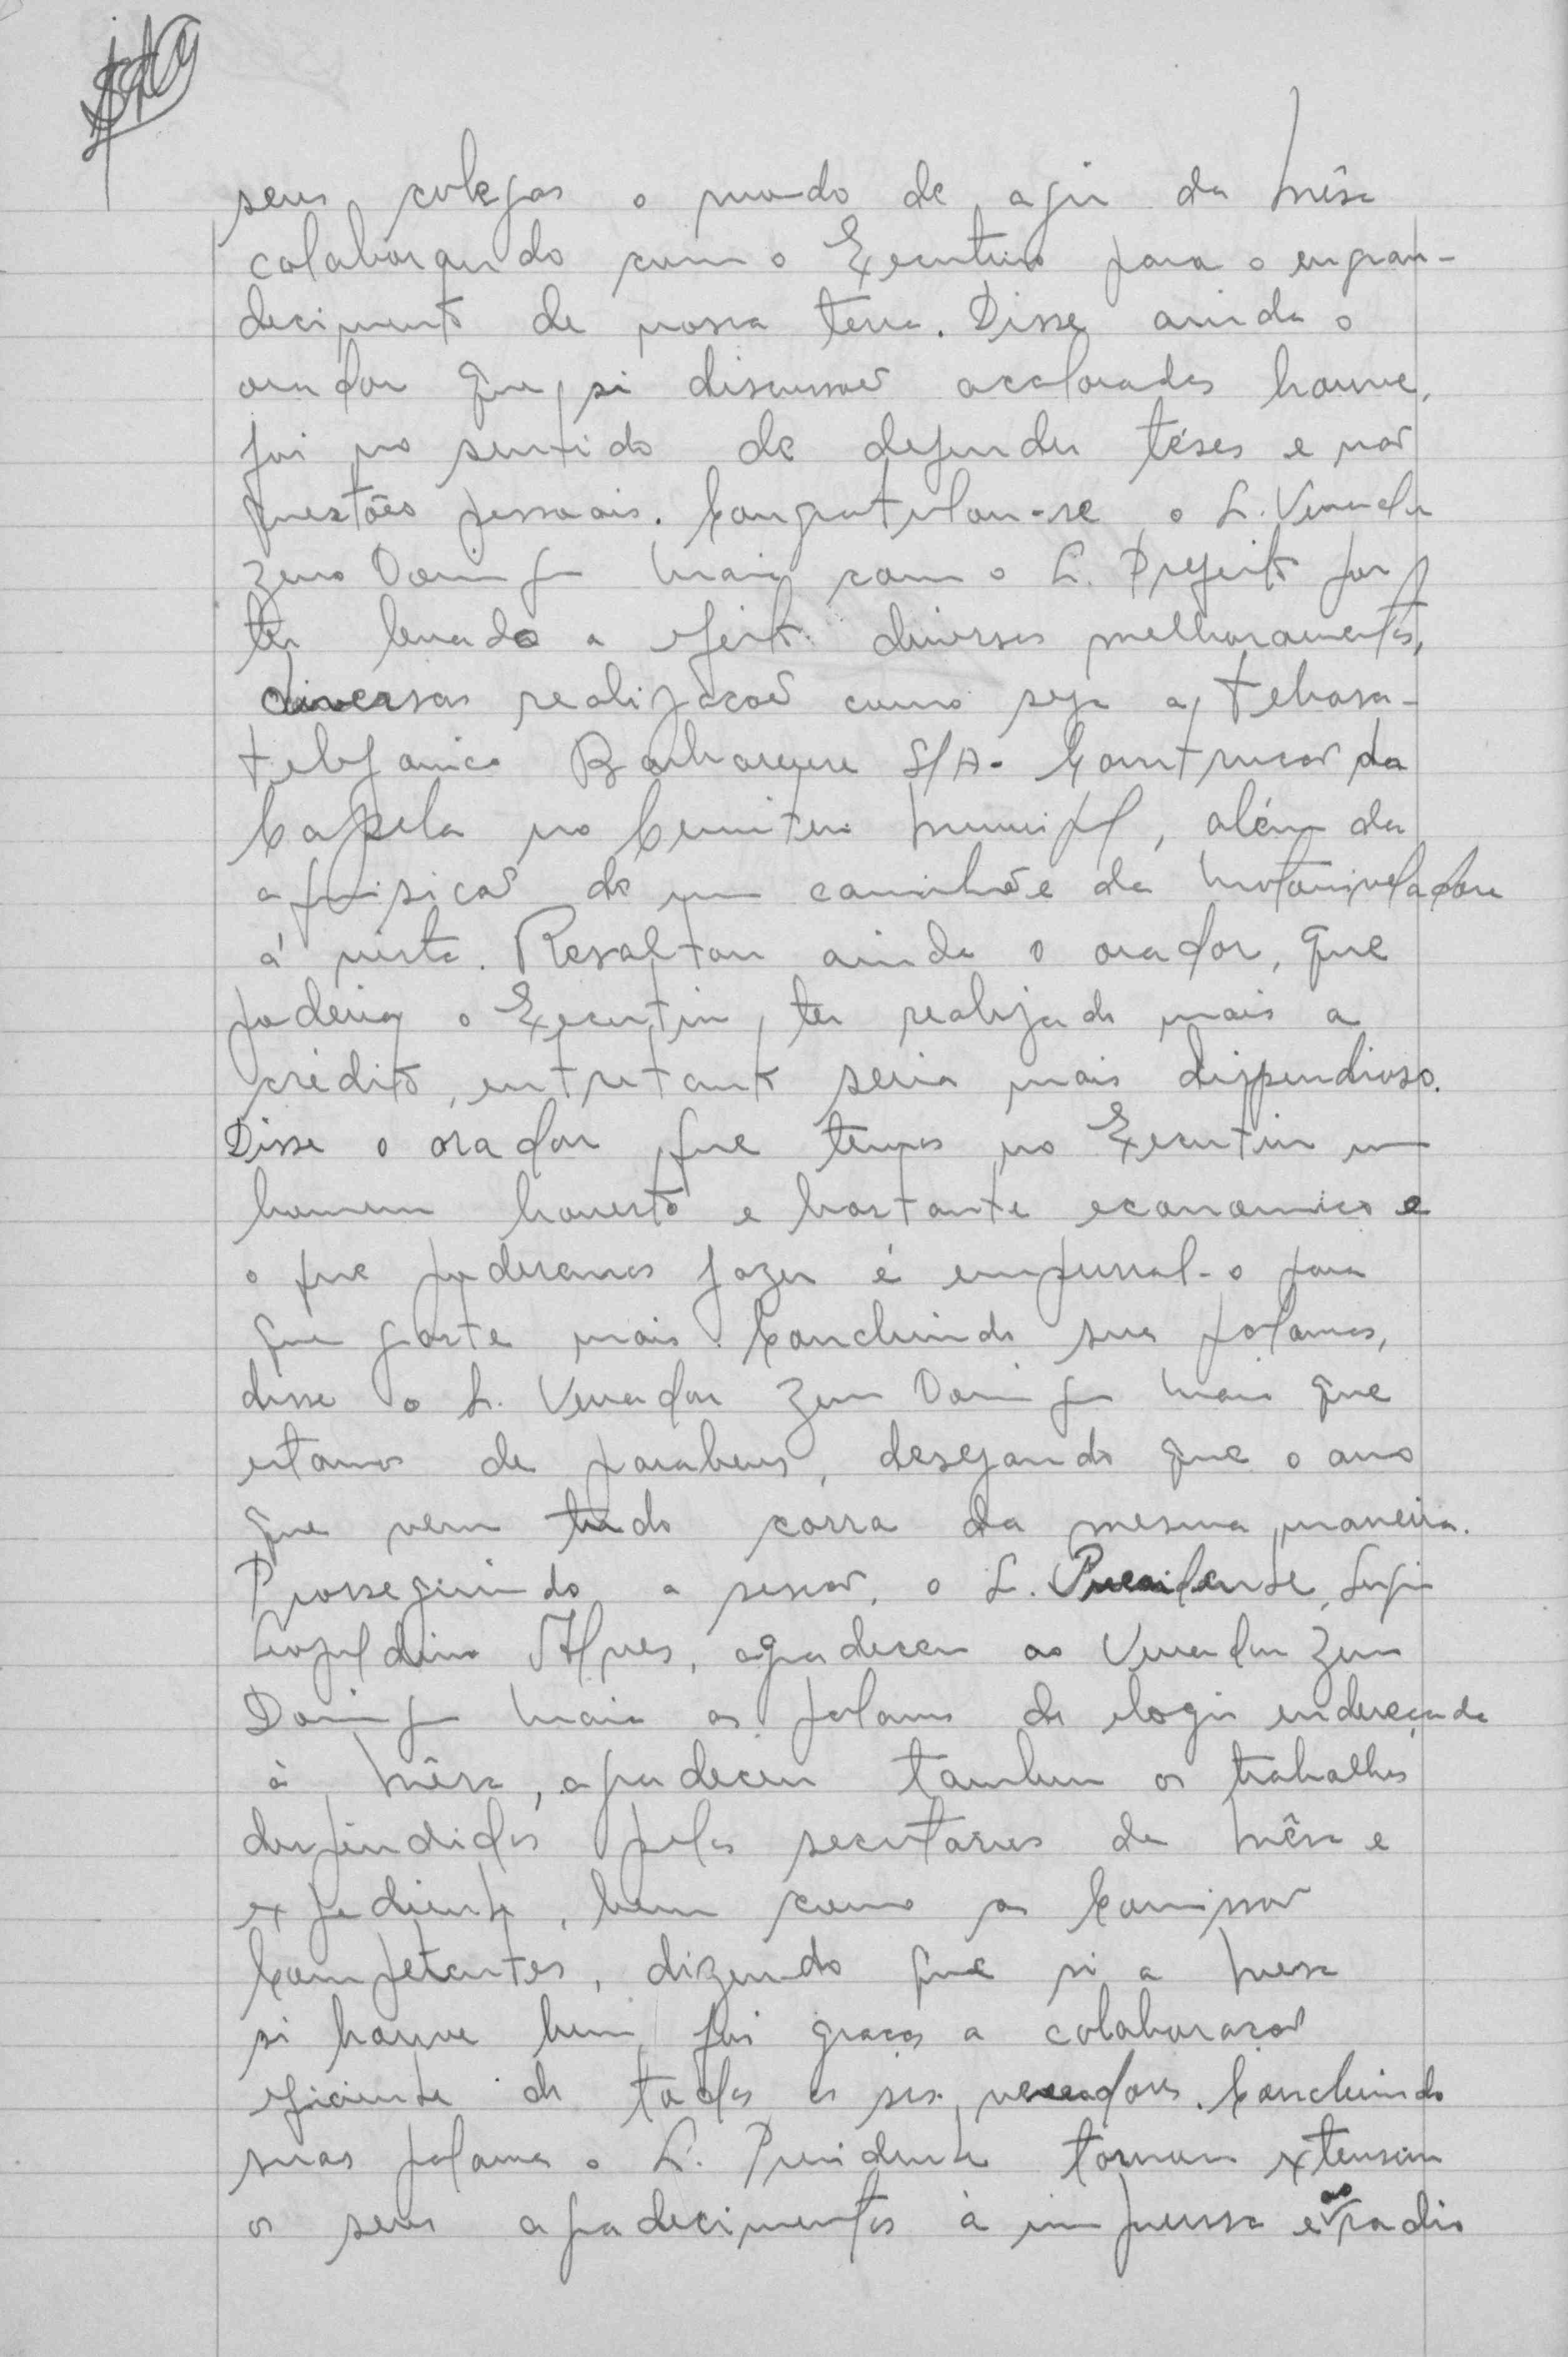 seus colegas o modo de agir da Mêsa
colaborando com o Executivo para o engran-
decimento de nossa terra. Disse ainda o
orador que, si discussoẽs acaloradas houve,
foi no sentido de defender téses e não
questões pessoais. Congratulou-se o S. Vereador
Zeno Domingues Maia com o S. Prefeito por
ter levado a efeito diversos melhoramentos,
diversas realizações como seja a Tebasa-
telefonica Barbarense S/A. Construcão da
Capela no Cemiterio Municipal, além da
aquisicão de um caminhão e da Motoniveladora
á vista. Resaltou ainda o orador, que
poderia o Executivo, ter realizado mais a
crédito, entretanto seria mais dispendioso.
Disse o orador que temos no Executivo um
homem honesto e bastante economico e
o que poderemos fazer é empurral-o para
que gaste mais. Concluindo suas palavras,
disse o S. Vereador Zeno Domingues Maia que
estamos de parabens, desejando que o ano
que vem tudo corra da mesma maneira.
Prosseguindo a sessão, o S. Presidente,
Leopoldino Alves, agradeceu ao Vereador Zeno
Domingues Maia as palavras de elogio endereçada
à Mêsa, agradeceu tambem os trabalhos
despendidos pelos secretarios da Mêsa e
expediente, bem como as Comissoẽs
Competentes, dizendo que si a Mesa
si houve bem, foi graças a colaboração
eficiente de todos os srs. vereadores. Concluindo
suas palavras o S. Presidente tornou extensivo
os seus agradecimentos à imprensa e ao radio